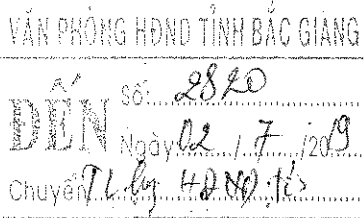 VĂN PHÒNG HĐND TỈNH BẮC GIANG
ĐẾN
Số: 2820
Ngày 02 / 7 / 2019
Chuyển: HĐND